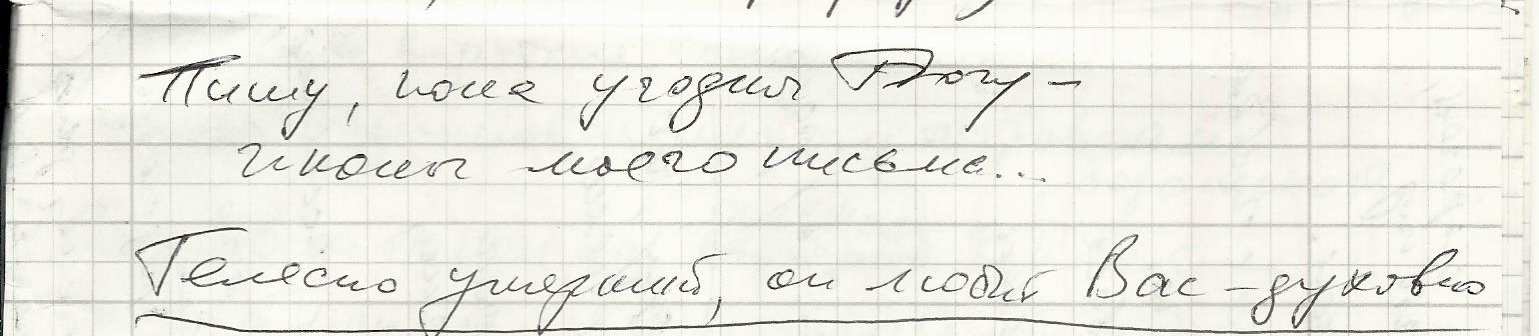 Пишу, пока угодны Богу –
иконы моего письма...
Телесно умерший, он любит Вас – духовно